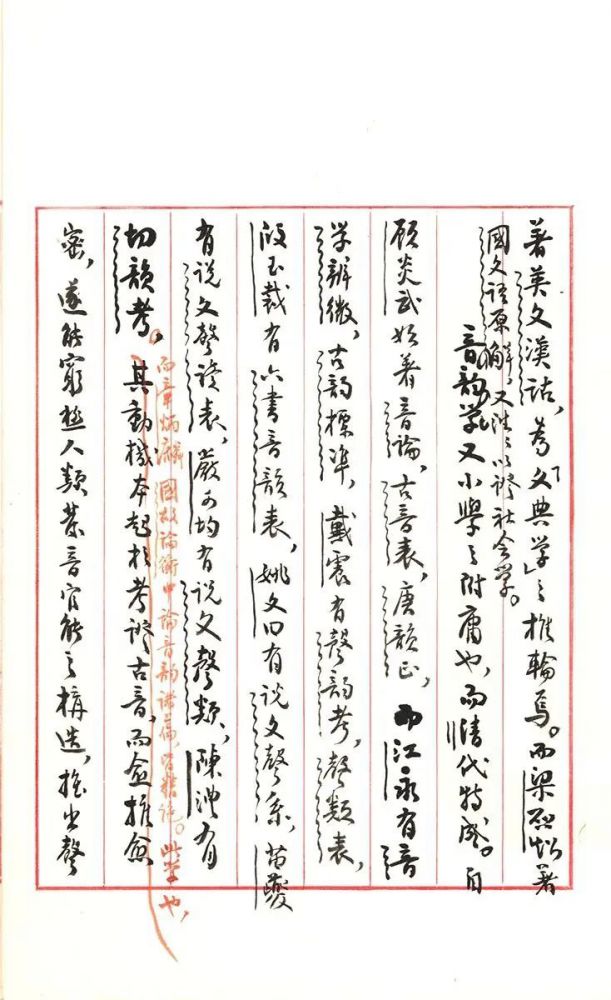 著英文漢詁，为「文典学」之椎輪焉。而梁啟超著
國文語原解，又往往以證社会学。
音韵学又小學之附庸也，而清代特盛。自
顾炎武始著音論，古音表，唐韻正，而江永有音
学辨微，古韵標準，戴震有聲韵考，聲類表，
段玉裁有六書音韻表，姚文田有説文聲系，苗夔
有説文聲读表，嚴可均有説文聲類，陳澧有
切韻考。其動機本起於考證古音，而愈推愈
而章炳麟國故論衡中論音韵諸篇，皆精绝。此学也，
密，遂能窮極人類發音官能之構造，推出聲